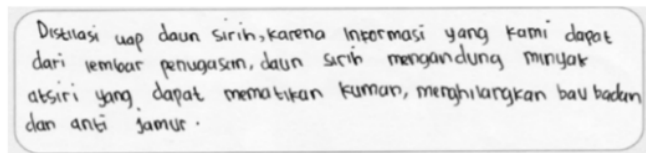 Distilasi uap daun sirih, karena informasi yang kami dapat
dari lembar penugasan, daun sirih mengandung minyak
atsiri yang dapat mematikan kuman, menghilangkan bau badan
dan anti jamur.